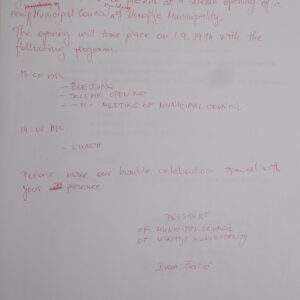 present at a solemn opening of a
new Municipal Council of Municipality.
The opening will take place on 1.9.1994 with the
following program.
15 00 HRS
- BLESSING
- SOLEMN OPENING
- -11- MEETING OF MUNICIPAL COUNCIL
19 00 HRS
- LUNCH
PLEASE, make our humble celebration special with
your presence.
PRESIDENT
OF MUNICIPAL COUNCIL
OF MUNICIPALITY
Ivan